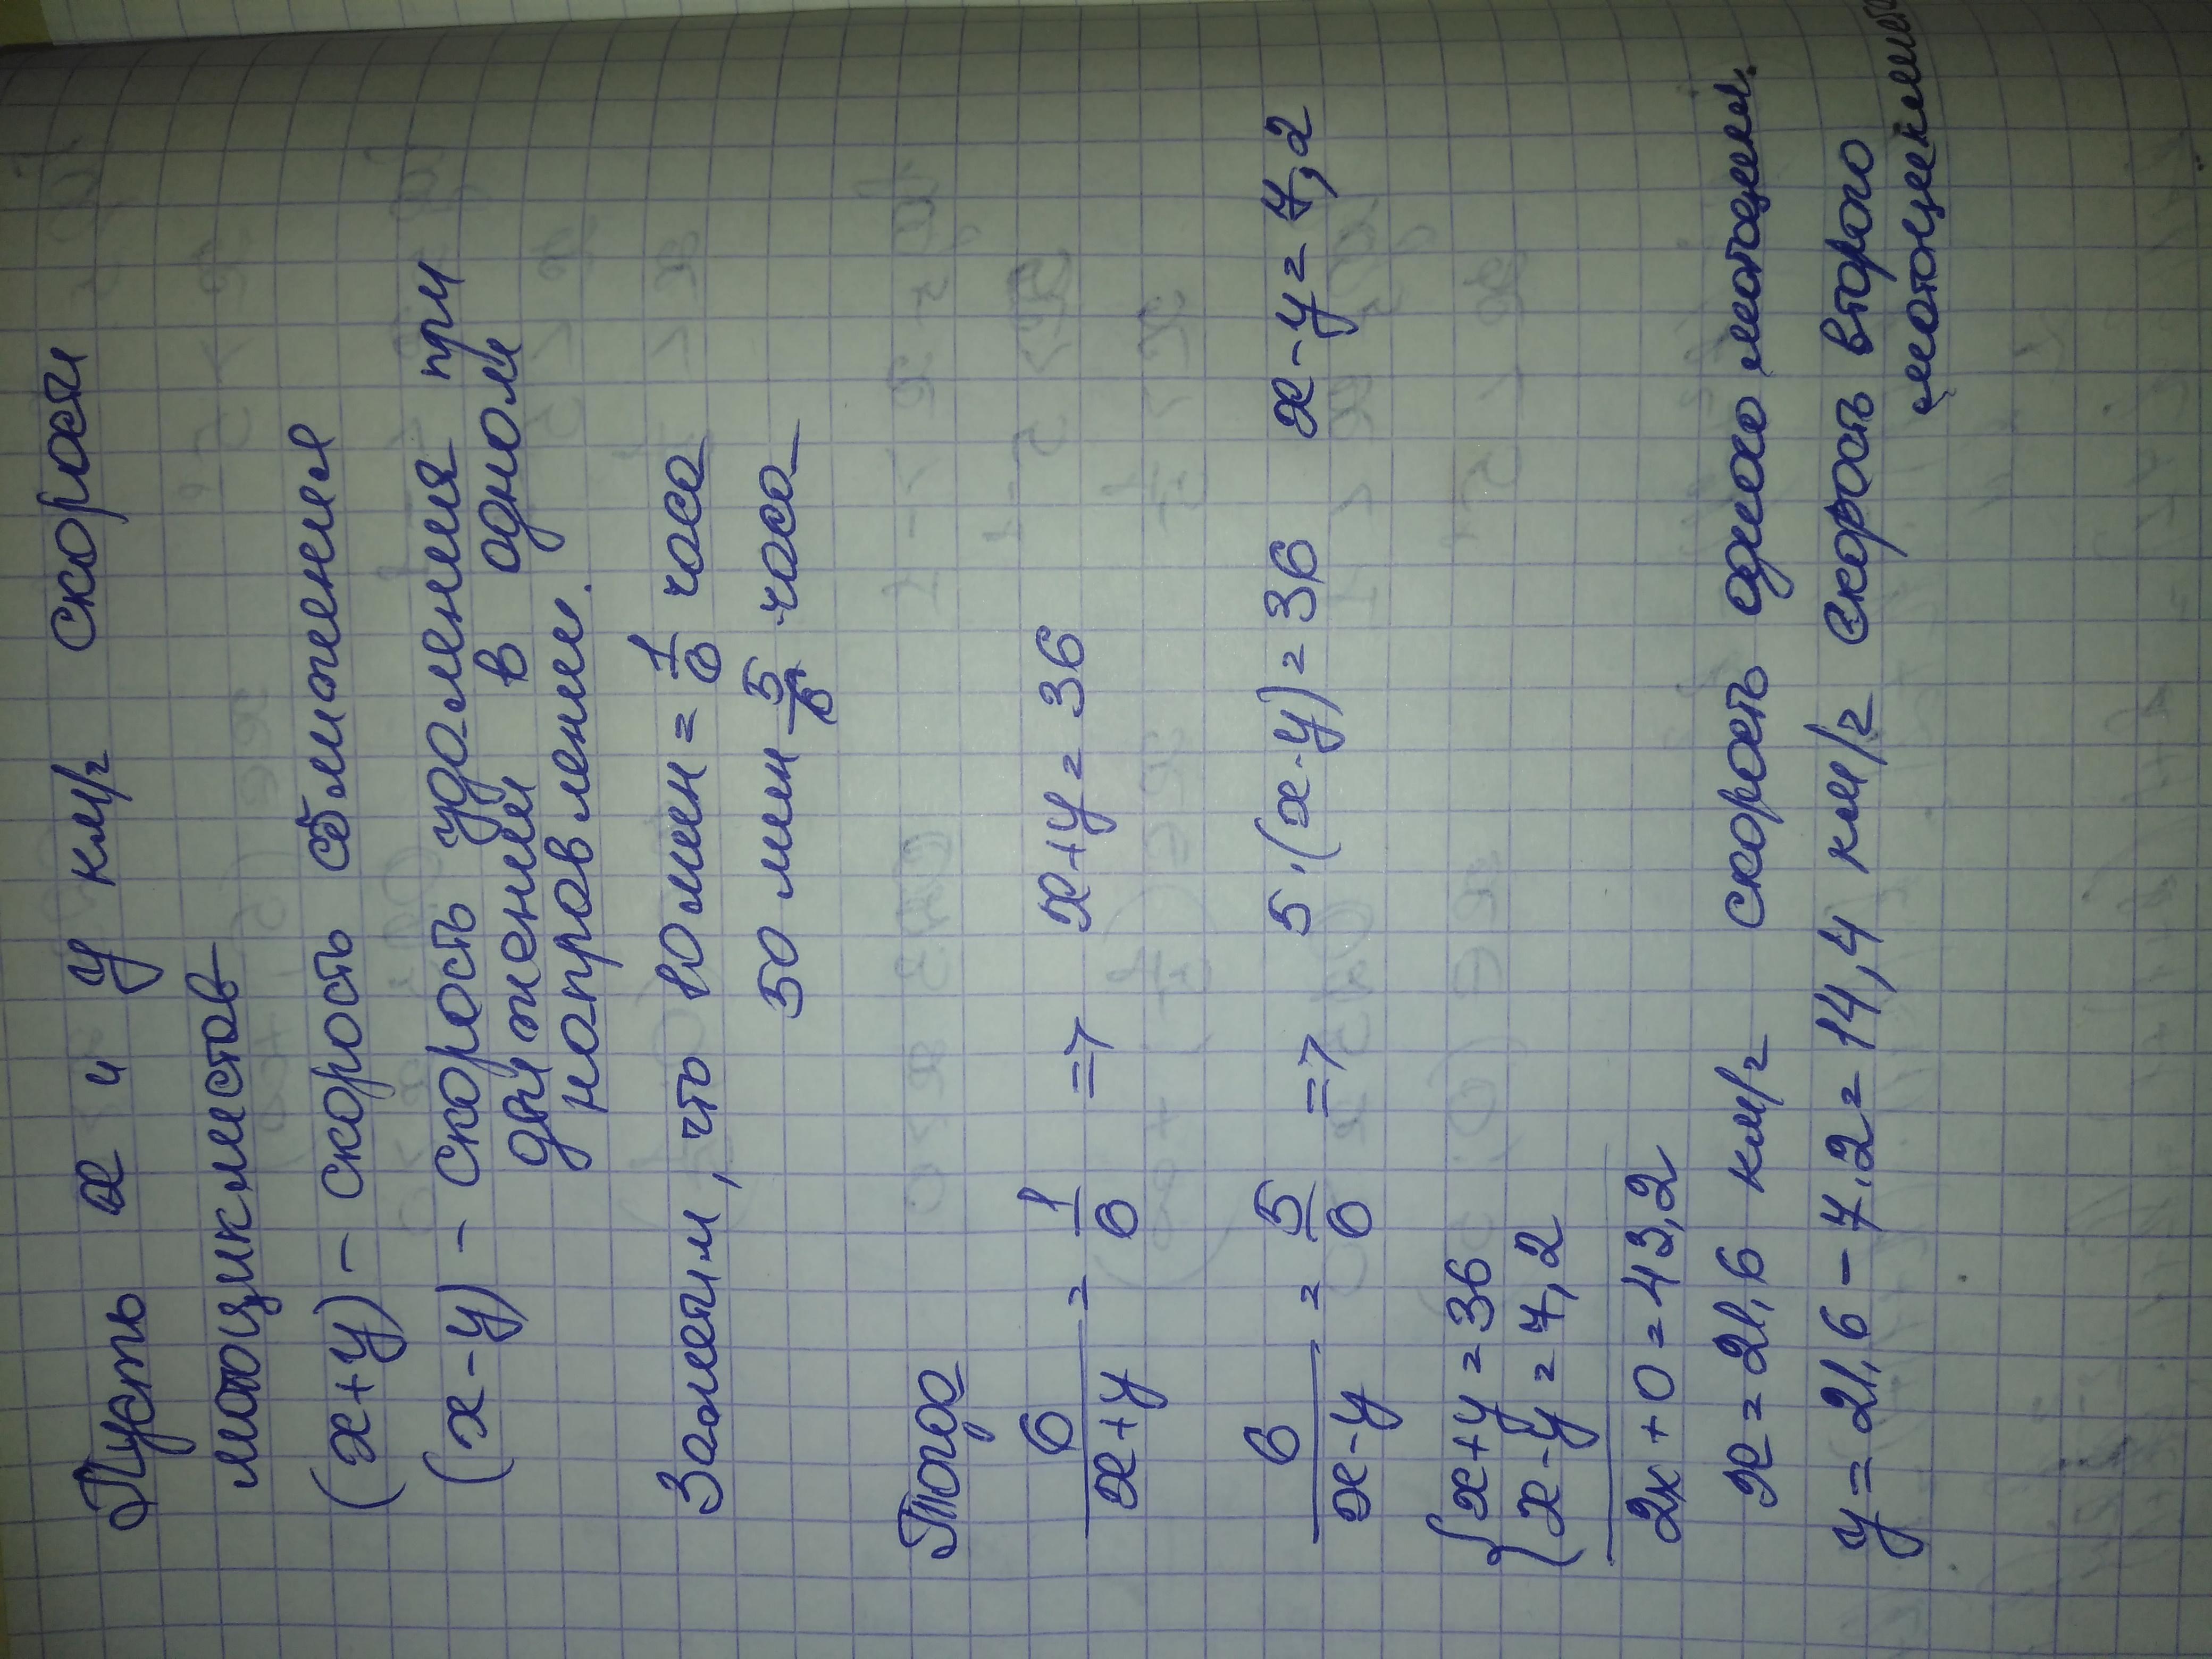 Пусть x и y км/г скорости
мотоциклистов
(x+y) – скорость сближения
(x-y) – скорость удаления при
движении в одном
направлении.
Заметим, что 10 мин = 1/6 часа
50 мин 5/6 часа
Тогда
6/(x+y) = 1/6 => x+y = 36
6/(x-y) = 5/6 => 5·(x-y) = 36 x-y = 7,2
{x+y = 36
x-y = 7,2
2x+0 = 43,2
x = 21,6 км/г скорость одного мотоцикл.
y = 21,6 - 7.2 = 14,4 км/г скорость второго
мотоциклиста